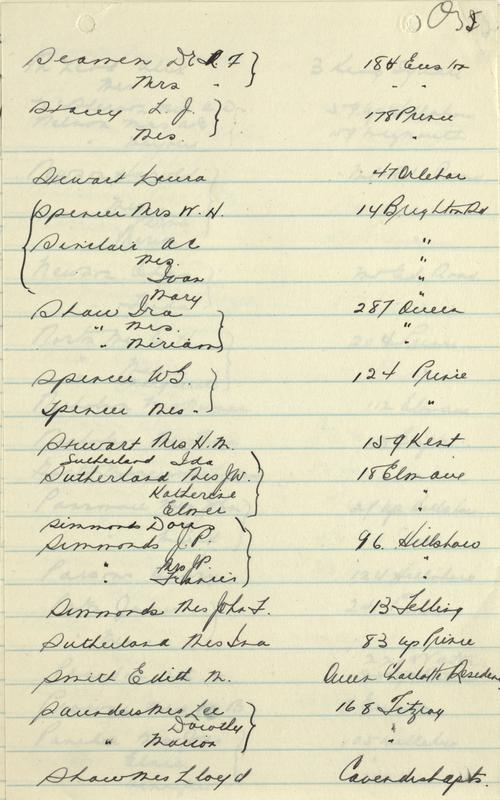 Seamen Dr F } 184 Euston
Mrs " " "
Stacey L. J. } 178 Prince
Mrs. "
Stewart Laura 47 Orlebar
Spencer Mrs W. H. 14 Brighton Rd
Sinclair AC "
Mrs. "
Ivan "
Mary
Shaw Ira 287 Queen
" Mrs. "
" Miriam
Spencer WS. } 124 Prince
Spencer Mrs. "
Stewart Mrs H. M. 159 Kent
Sutherland Ida
Sutherland Mrs J.W. 18 Elm ave
Katherine "
Elmer
Simmonds Doris
Simmonds J.P. 96 Hillsboro
" Mrs JP. "
Francis
Simmonds Mrs John F. 13
Sutherland Mrs Ira 83 up Prince
Smith Edith M. Queen Charlotte Residen
Saunders Mrs Lee 168 Fitzroy
Dorothy "
" Marion "
Shaw Mrs Lloyd Cavendish apts.